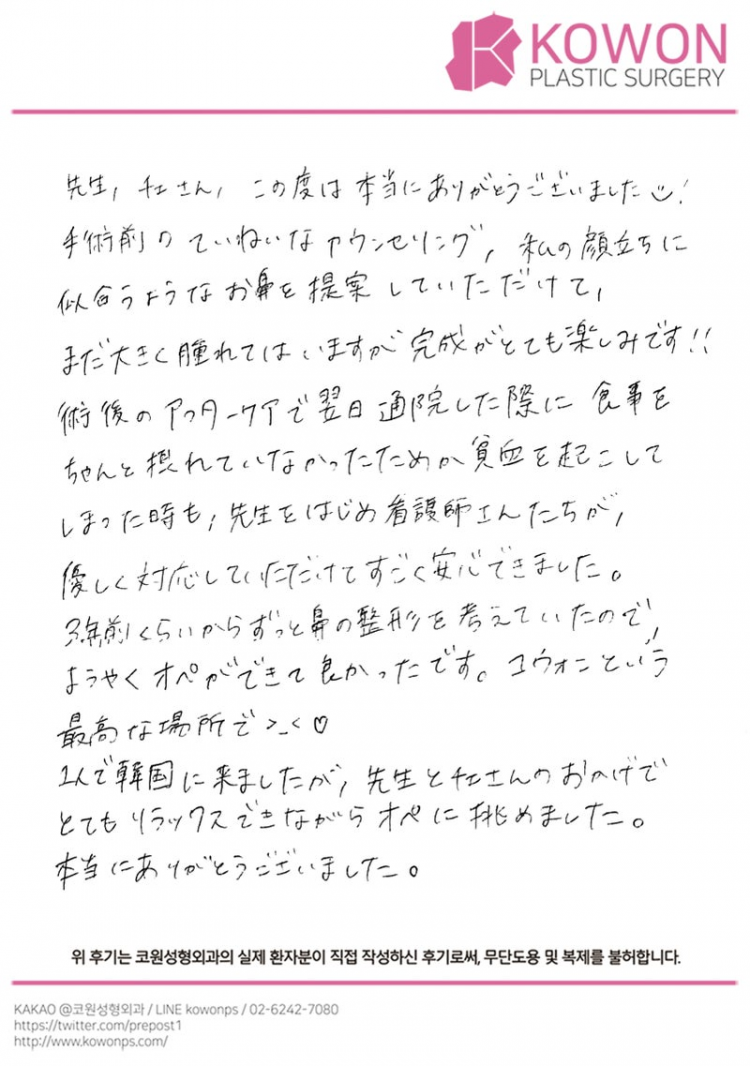 KOWON
PLASTIC SURGERY
先生, チェさん, この度は本当にありがとうございました!
手術前のていねいなカウンセリング, 私の顔立ちに
似合うようなお鼻を提案していただけて,
まだ大きく腫れてはいますが完成がとても楽しみです!!
術後のアフターケアで翌日通院した際に食事を
ちゃんと摂れていなかったためか貧血を起こして
しまった時も, 先生をはじめ看護師さんたちが,
優しく対応していただけてすごく安心できました。
3年前くらいからずっと鼻の整形を考えていたので,
ようやくオペができて良かったです。コウォンという
最高な場所で >_< ♡
1人で韓国に来ましたが, 先生とチェさんのおかげで
とてもリラックスできながらオペに挑めました。
本当にありがとうございました。
위 후기는 코원성형외과의 실제 환자분이 직접 작성하신 후기로써, 무단도용 및 복제를 불허합니다.
KAKAO @코원성형외과 / LINE kowonps / 02-6242-7080
https://twitter.com/prepost1
http://www.kowonps.com/